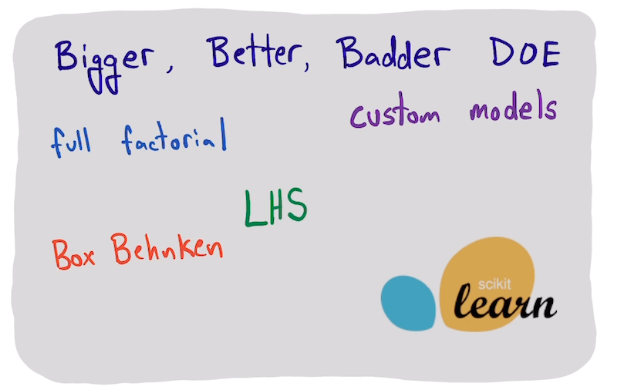 Bigger, Better, Badder DOE
custom models
full factorial
LHS
Box Behnken
scikit
learn